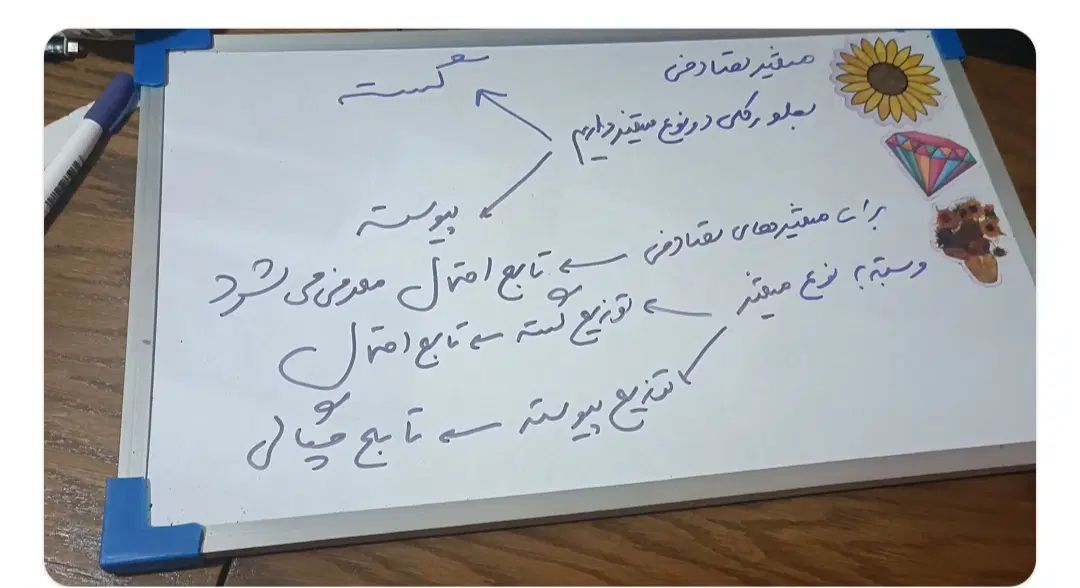 متغیر تصادفی
بطور کلی دو نوع متغیر داریم
گسسته
پیوسته
برای متغیرهای تصادفی ← تابع احتمال معرفی می شود
وبسته به نوع متغیر ← توزیع گسسته ← تابع احتمال
توزیع پیوسته ← تابع چگالی